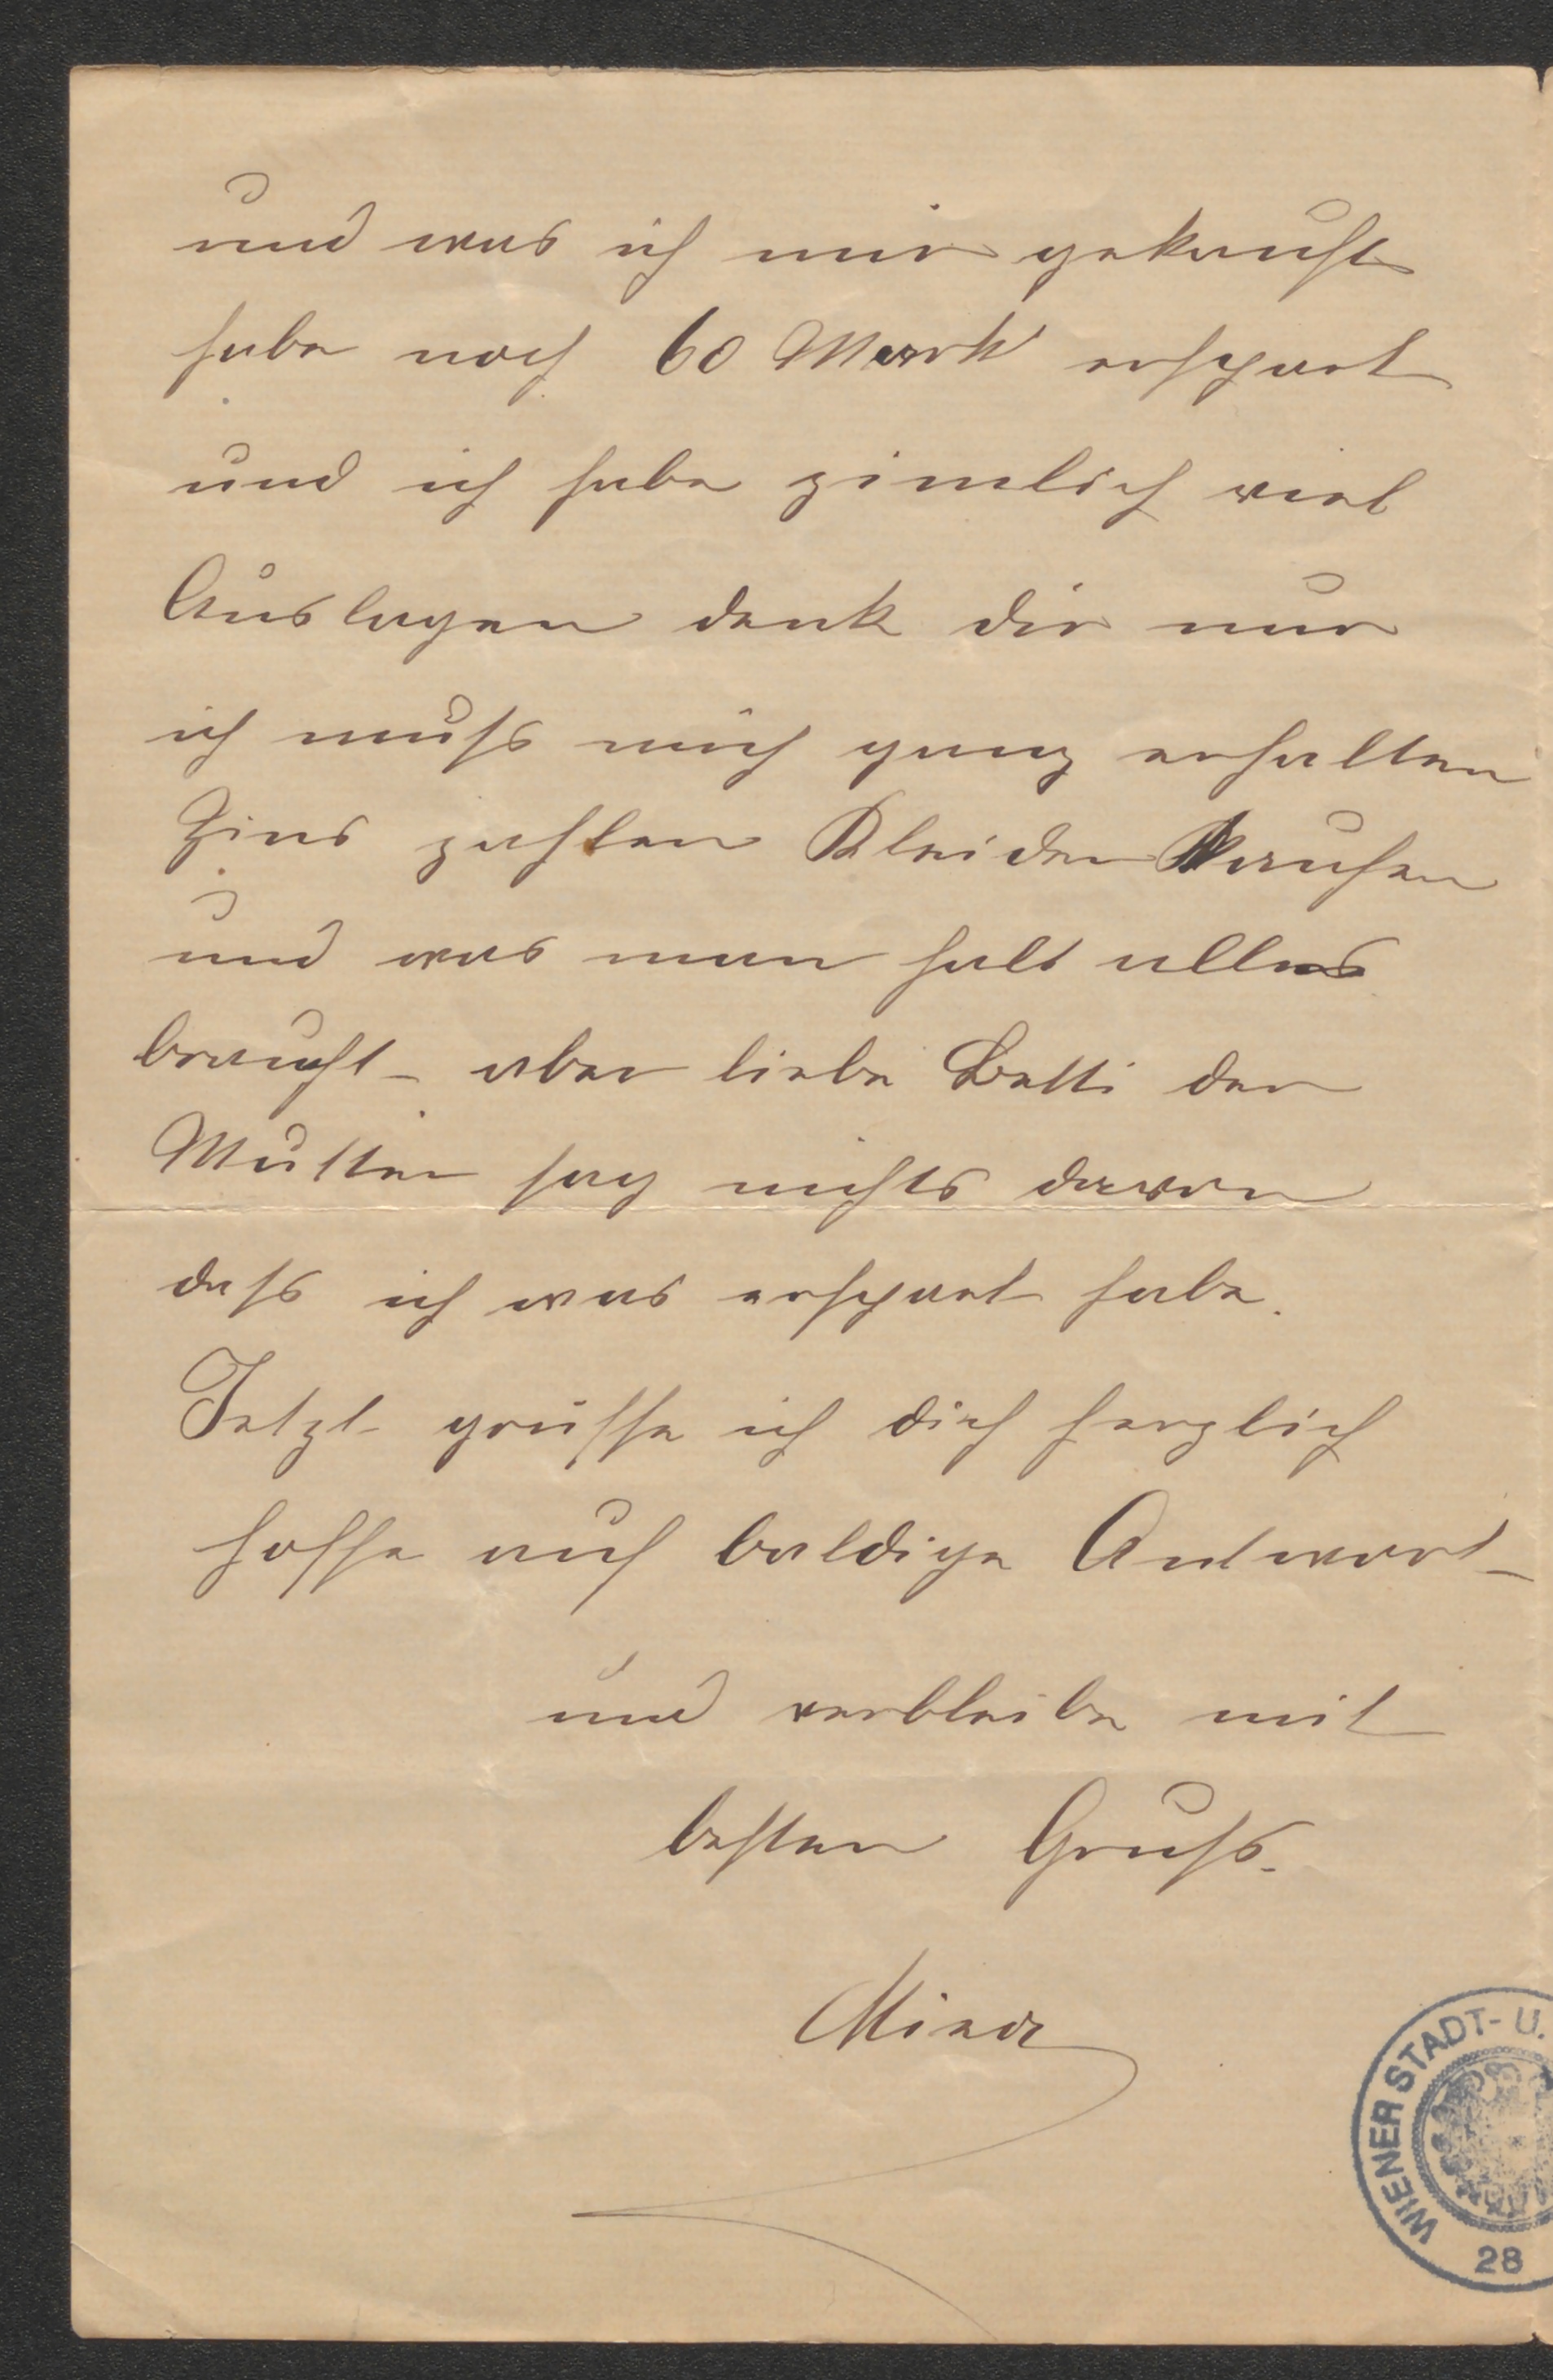 und was ich mir gekauft
habe noch 60 Mark erspart
und ich habe zimlich viel
Auslagen denk dir nur
ich muss mich ganz erhalten
Zins zahlen Kleider Kaufen
und was man halt alles
braucht - aber liebe Betti der
Mutter sag nichts davon
dass ich was erspart habe.
Jetzt grüsse ich dich herzlich
hoffe auf baldige Antwort -
und verbleibe mit
besten Gruss.
WIENER STADT- U.
28